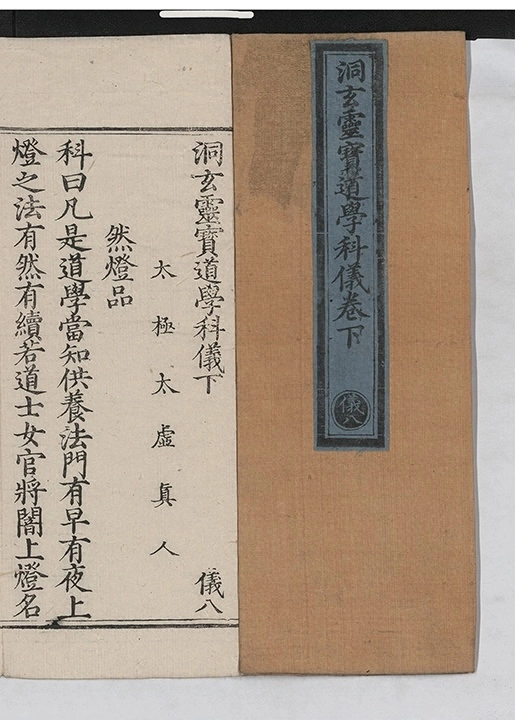 洞玄靈寶道學科儀卷下
儀八
洞玄靈寶道學科儀下
儀八
太極太虛真人
然燈品
科曰凡是道學當知供養法門有早有夜上
燈之法有然有續若道士女官將闇上燈名